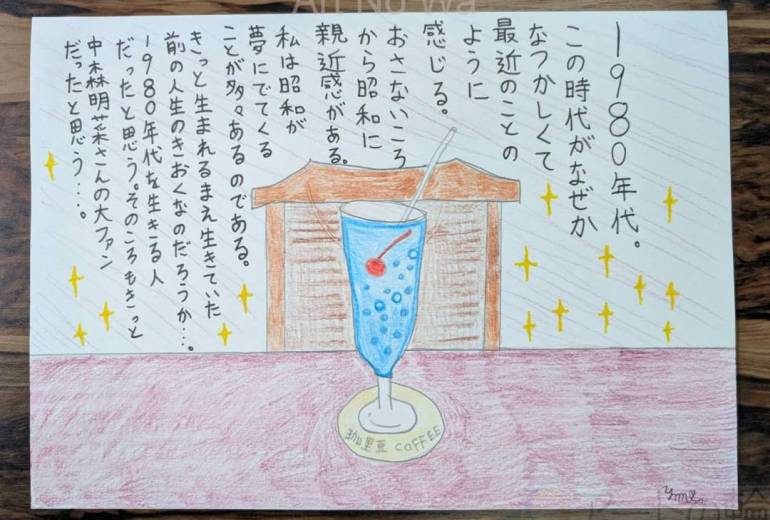 1980年代。
この時代がなぜか
なつかしくて
最近のことの
ように
感じる。
おさないころ
から昭和に
親近感がある。
私は昭和が
夢にでてくる
ことが多々あるのである。
きっと生まれるまえ生きていた
前の人生のきおくなのだろうか…。
1980年代を生きる人
だったと思う。そのころもきっと
中森明菜さんの大ファン
だったと思う…。
珈里亜 COFFEE
Art No Wa
アートの輪